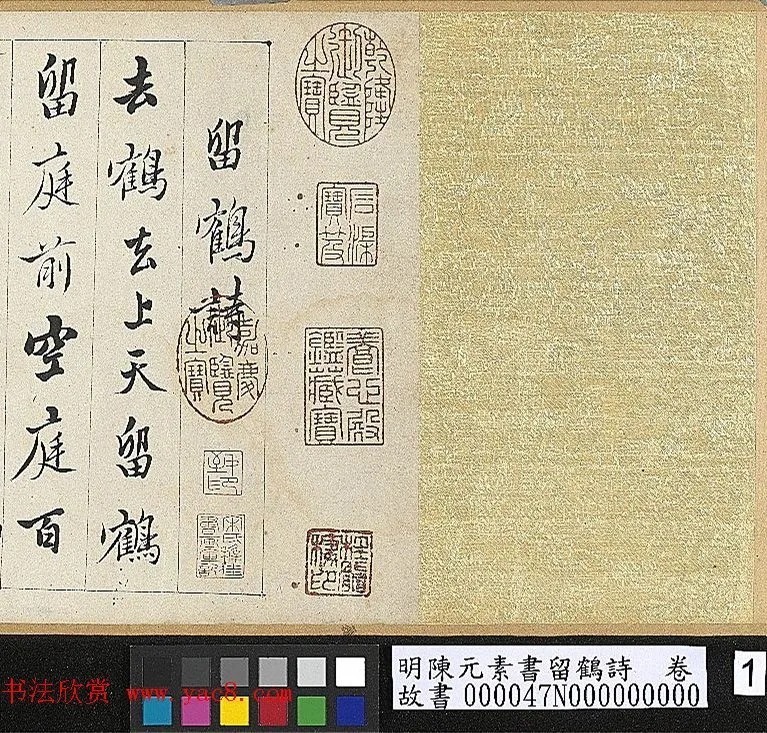 乾隆御覽之寶
石渠寶笈
養心殿鑑藏寶
留鶴詩
嘉慶御覽之寶
去鶴去上天留鶴
留庭前空庭百
明陳元素書留鶴詩 卷
故書000047N000000000
1
书法欣赏 www.yac8.com